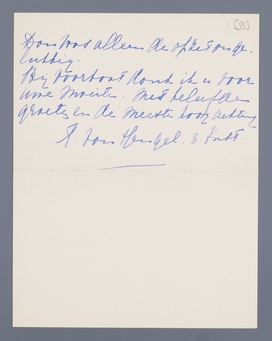 [8]
Dan was alleen de opzet onge-
lukkig.
Bij voorbaat dank ik u voor
uwe moeite. Met beleefde
groeten en de meeste hoogachting
v. Hengel